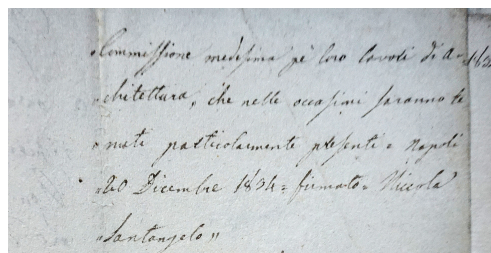 "Commissione medesima pe' loro lavori di ar-
"chitettura, che nelle occasioni saranno te
"nuti particolarmente presenti = Napoli
"20 Dicembre 1834 = firmato = Nicola
"Santangelo"